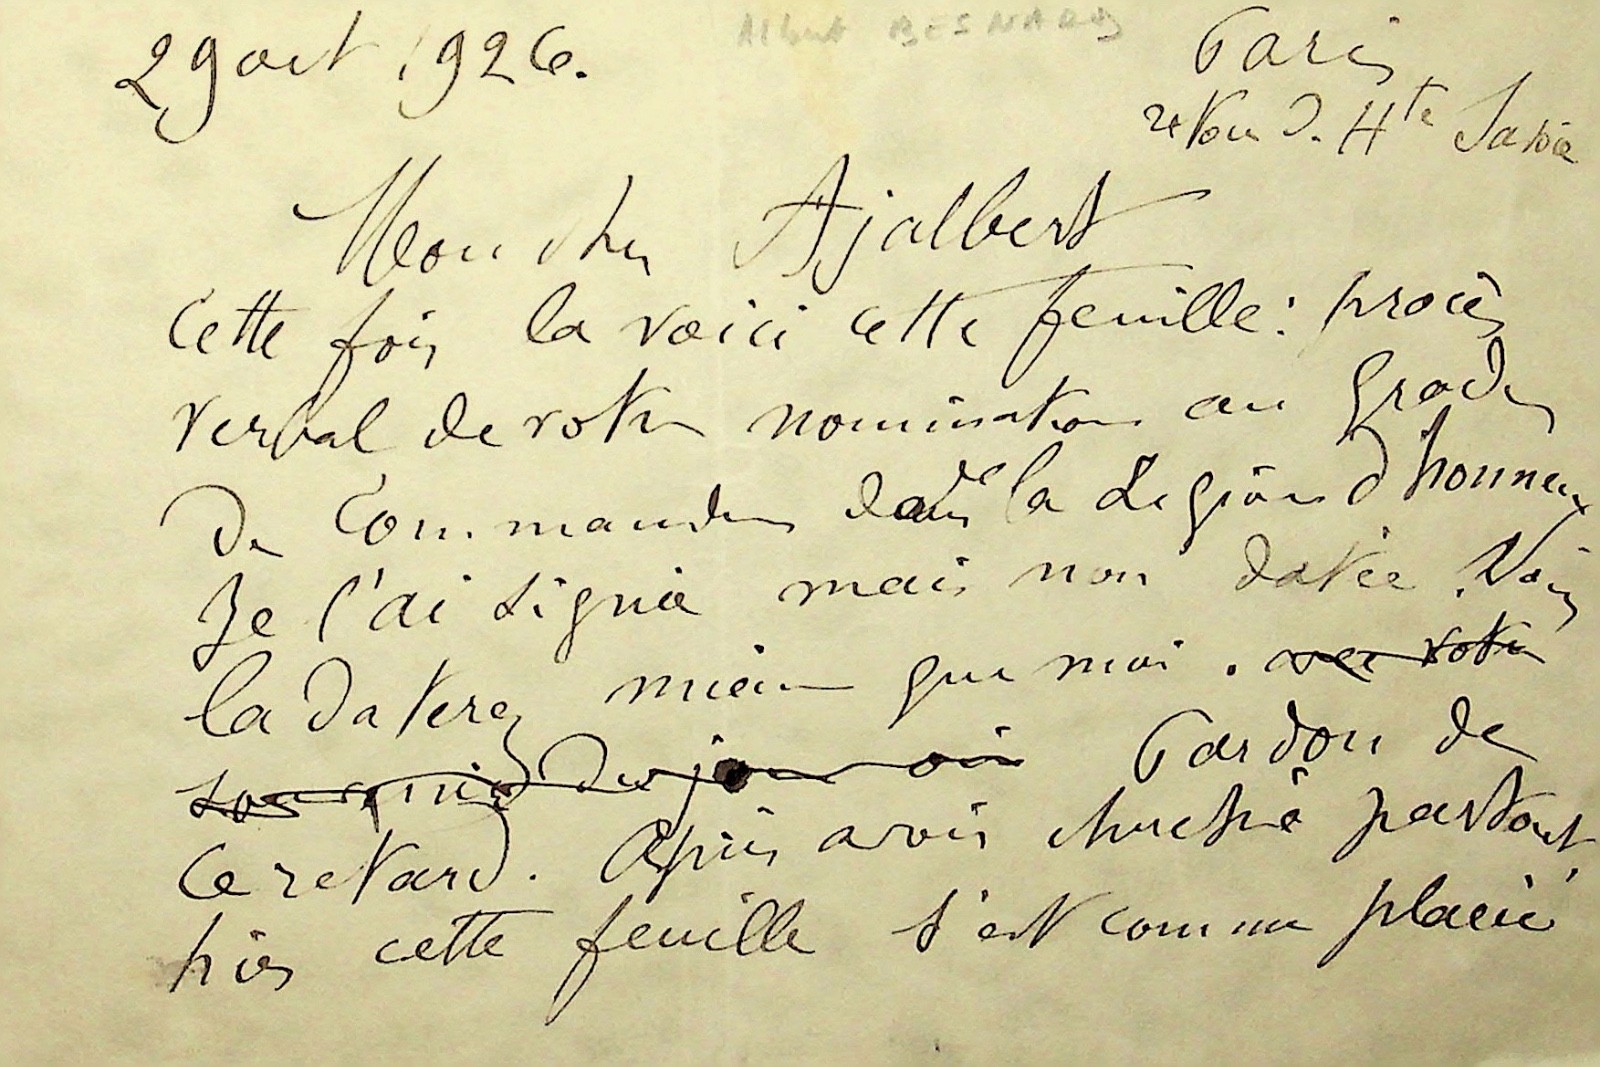 Albert BESNARD
29 aout 1926.
Paris
D. Hte Savoie
Mon cher Ajalbert
Cette fois la voici cette feuille : procès
verbal de votre nomination au grade
de Commandeur dans de la Legion d'honneur
Je l'ai signée mais non datée. Vous
la daterez mieux que moi. avec votre
Pardon de
ce retard. Après avoir cherché partout
hier cette feuille s'est comme placée